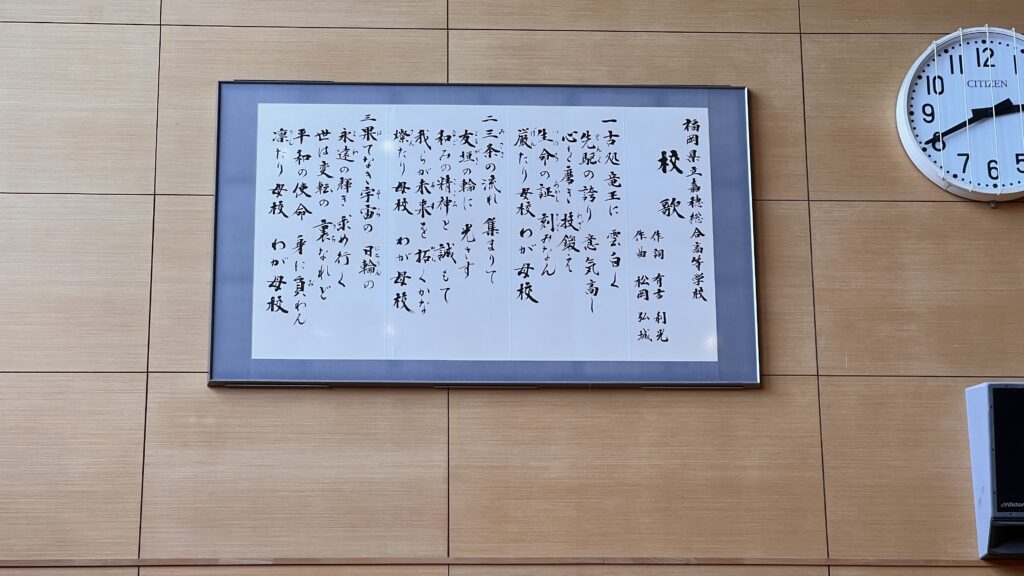 福岡県立嘉穂総合高等学校
校歌
作詞 有吉利光
作曲 松岡弘城
一 古処竜王に 雲白く
先配の誇り 意気高し
心を磨き 技鍛え
生命の証 刻みなん
厳たり母校 わが母校
二 三条の流れ 集まりて
友垣の輪に 光さす
和みの精神 誠もて
我らが未来を 拓くかな
燦たり母校 わが母校
三 果てなき宇宙の 日輪の
永遠の輝き 求め行く
世は変転の 裏なれど
平和の使命 身に負わん
凛たり母校 わが母校
CITIZEN
12
11
10
9
8
7
6
5
Victor